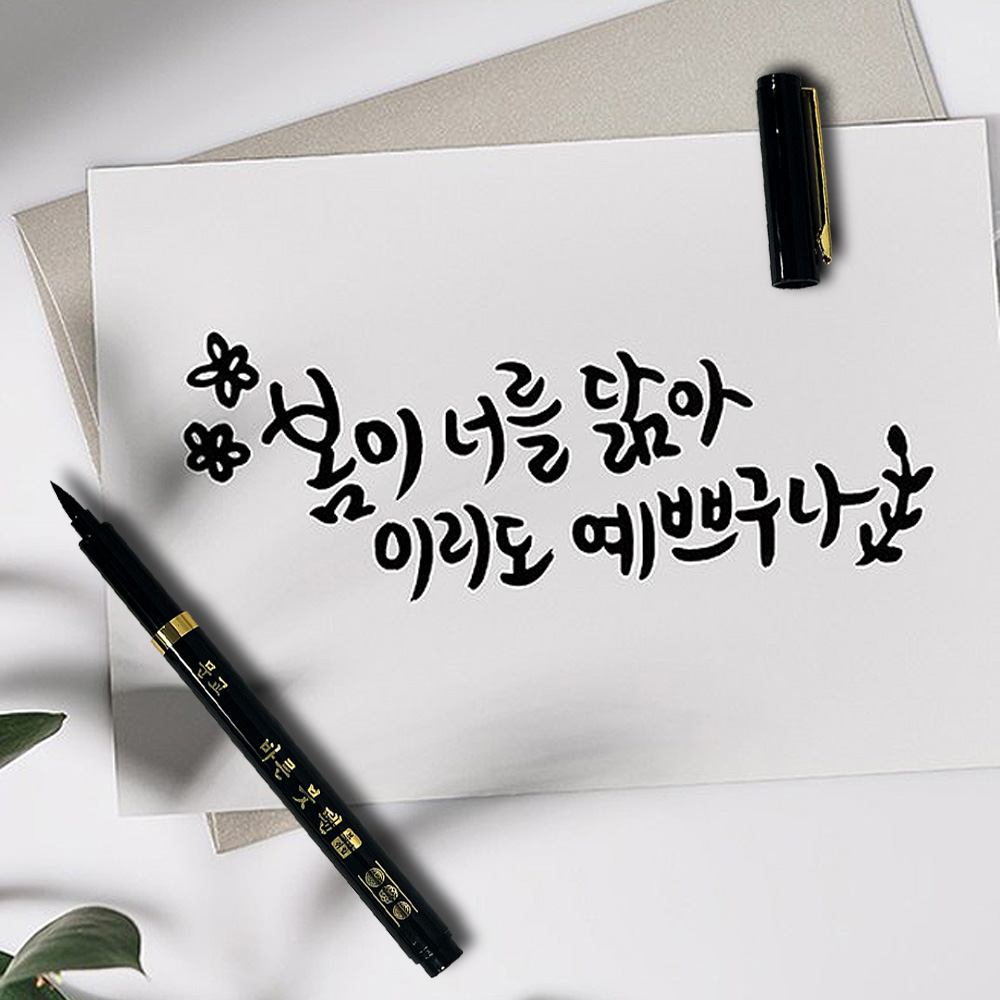 봄이 너를 닮아
이리도 예쁘구나
문교
바른 붓펜